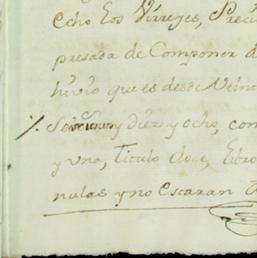 echo los Virreyes, Presi
presada de Componer d
hivio que es desde Veint
Setecientos y diez y ocho, con
y una, Titulo doce, Libro
nulas y no escaran